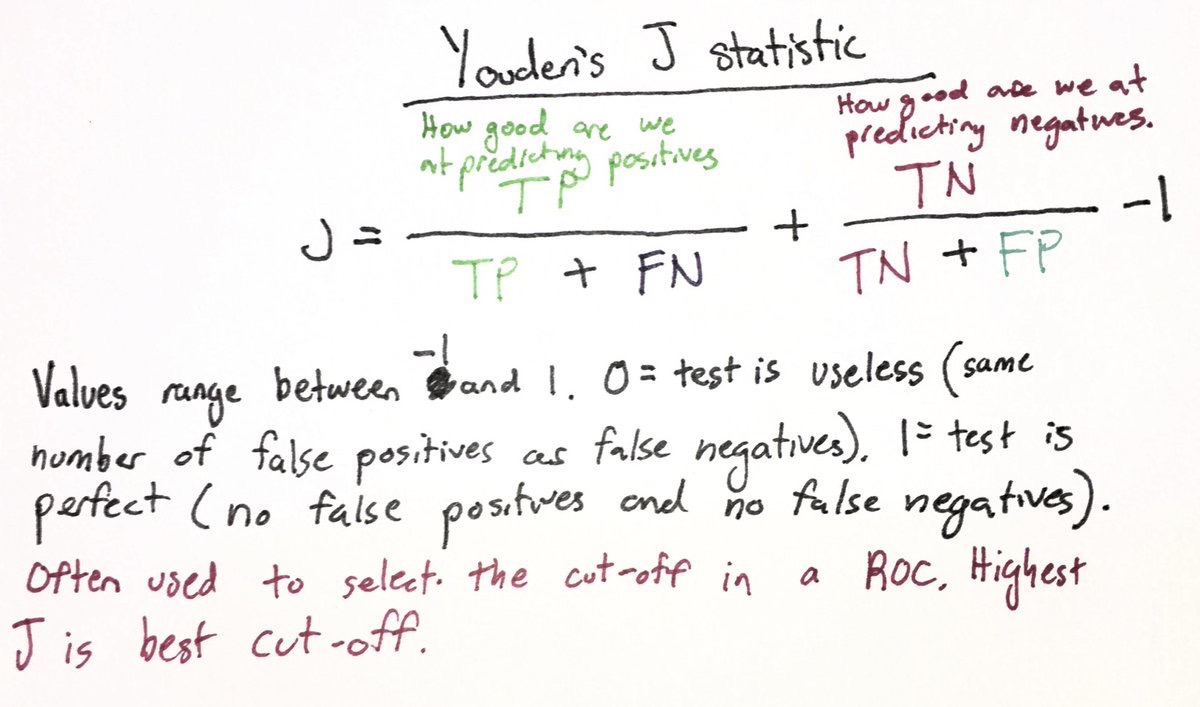 Youden's J statistic
How good are we
at predicting positives
How good are we at
predicting negatives.
J = TP / TP + FN + TN / TN + FP - 1
Values range between -1 and 1. 0 = test is useless (same
number of false positives as false negatives). 1 = test is
perfect (no false positives and no false negatives).
Often used to select the cut-off in a ROC. Highest
J is best cut-off.